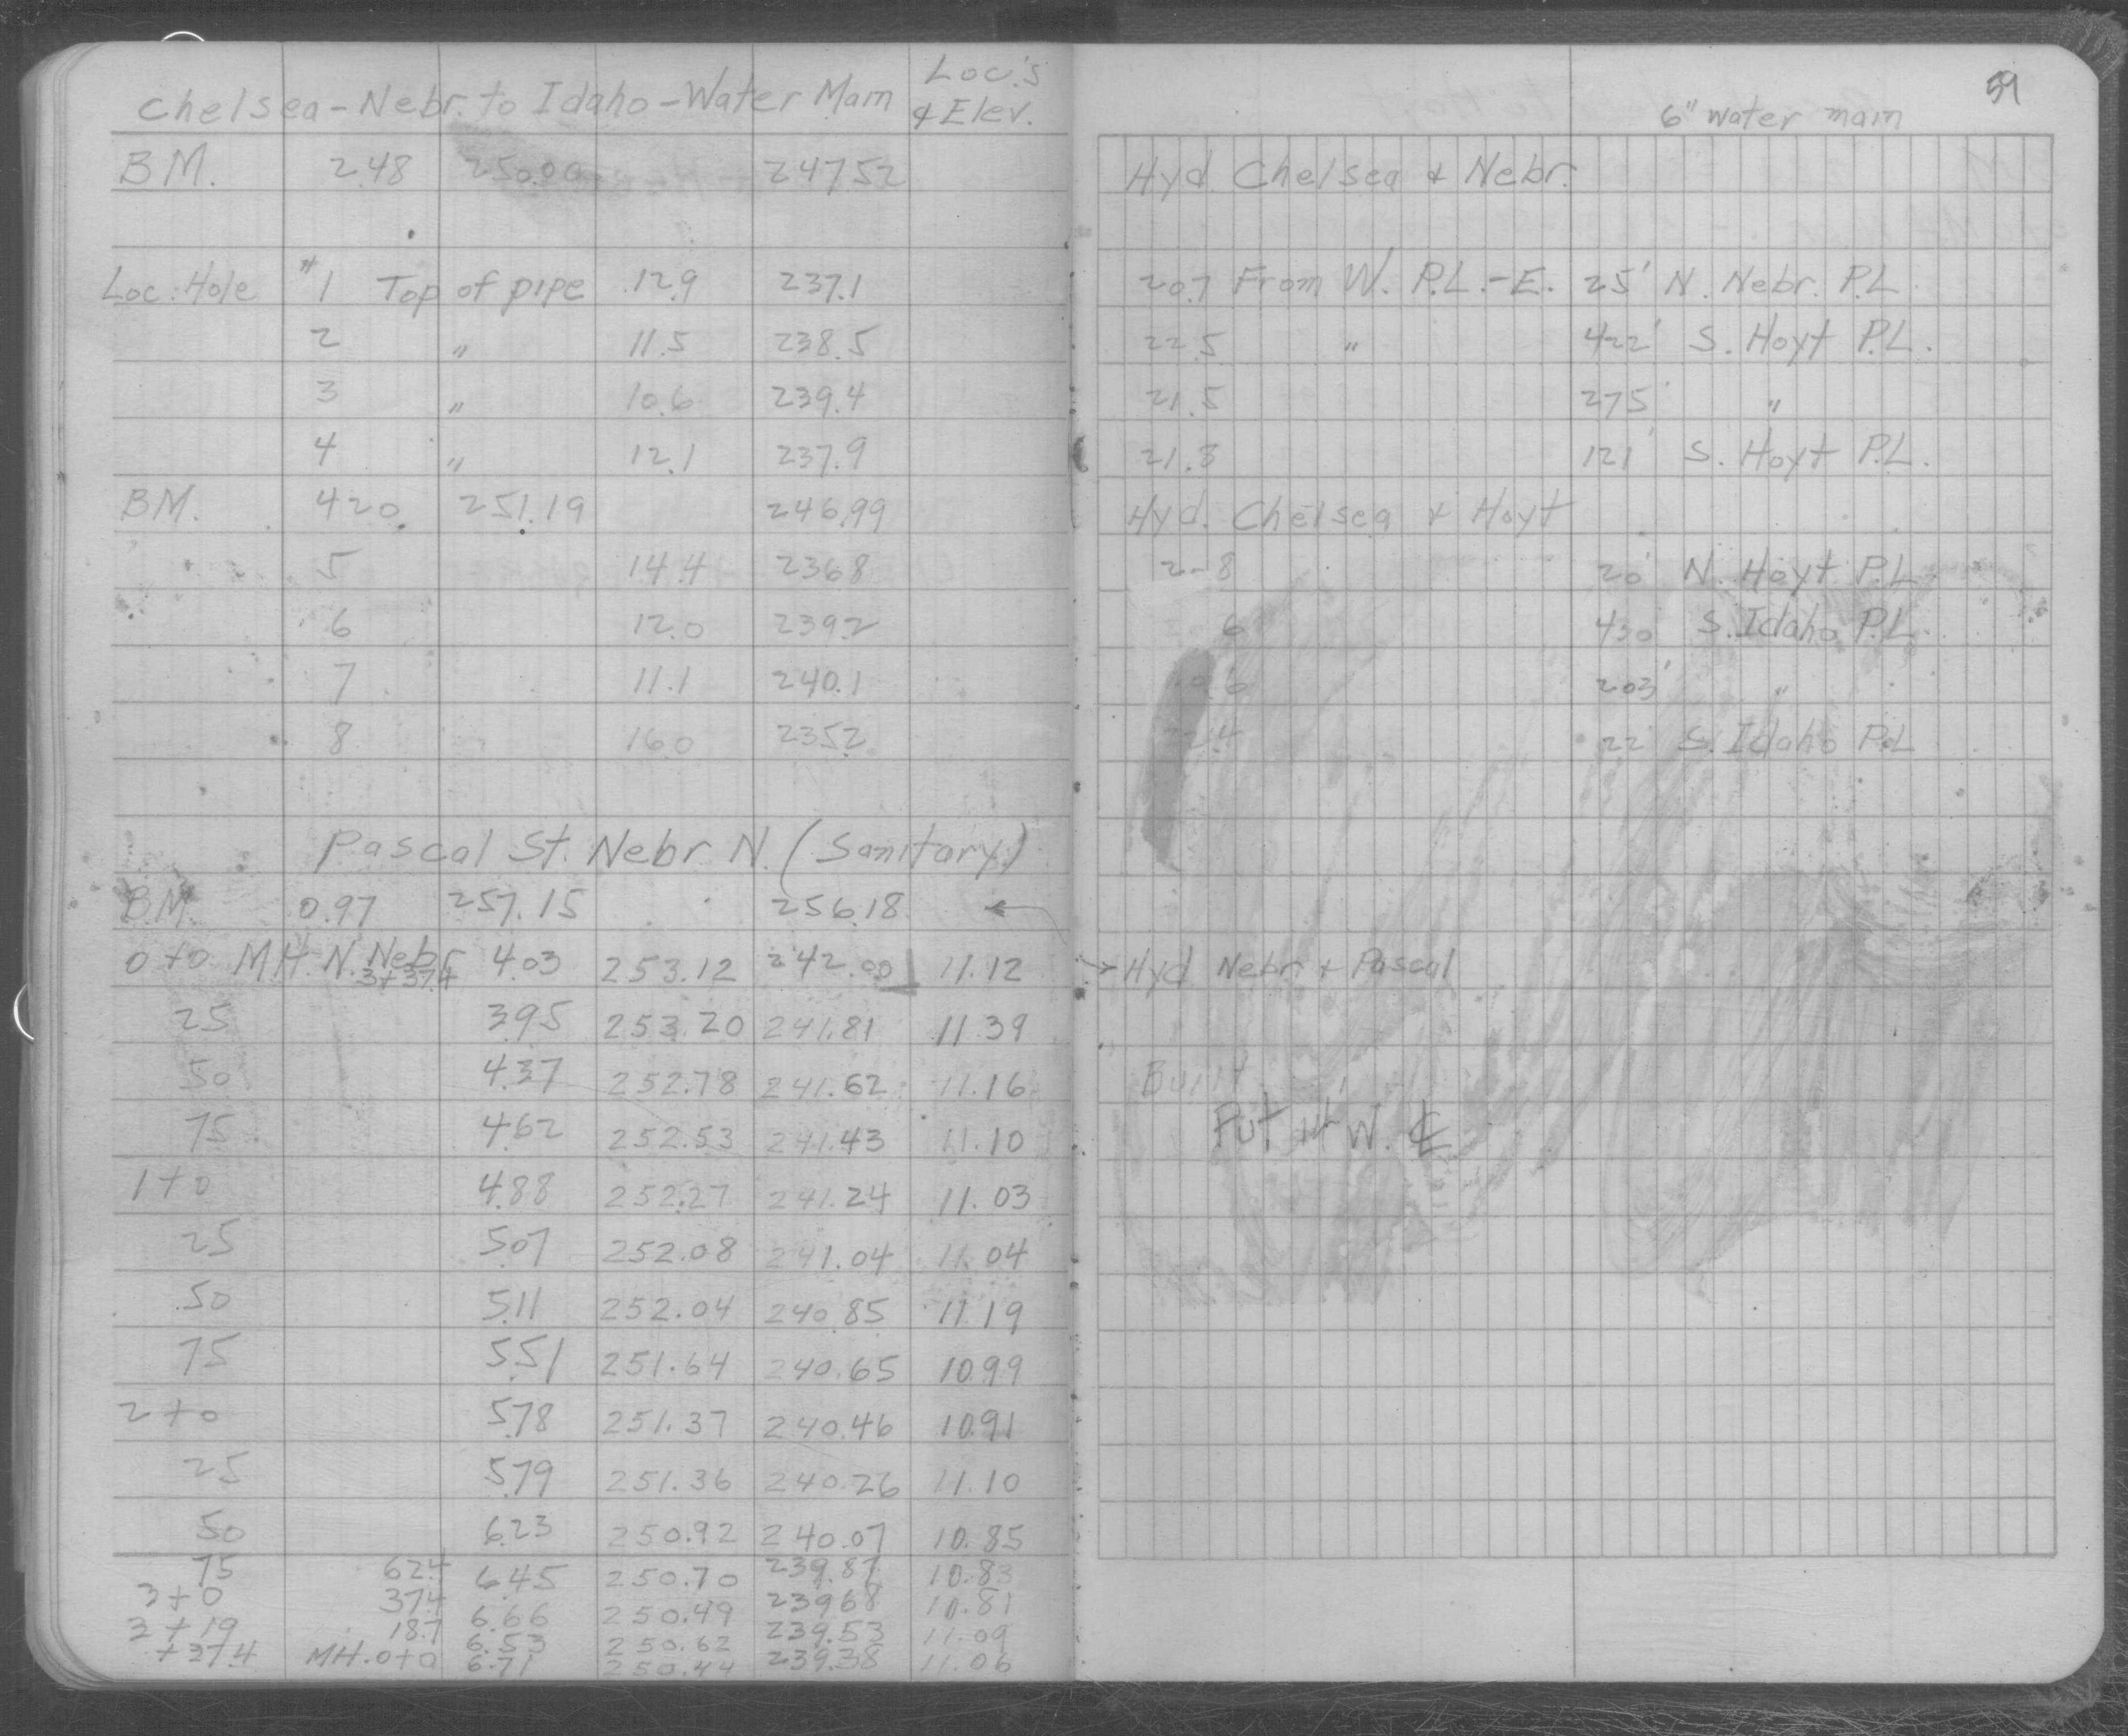 Loc.'s
Chelsea - Nebr. to Idaho - Water Main & Elev.
BM. 2.48 250.00 247.52
Loc. Hole #1 Top of pipe 12.9 237.1
2 " 11.5 238.5
3 " 10.6 239.4
4 " 12.1 237.9
BM. 4.20 251.19 246.99
5 14.4 236.8
6 12.0 239.2
7 11.1 240.1
8 16.0 235.2
Pascal St. Nebr N. (Sanitary)
BM. 0.97 257.15 256.18 ←
0+0 MH. N. Nebr 4.03 253.12 242.00 11.12
3+37.4
25 3.95 253.20 241.81 11.39
50 4.37 252.78 241.62 11.16
75 4.62 252.53 241.43 11.10
1+0 4.88 252.27 241.24 11.03
25 5.07 252.08 241.04 11.04
50 5.11 252.04 240.85 11.19
75 5.51 251.64 240.65 10.99
2+0 5.78 251.37 240.46 10.91
25 5.79 251.36 240.26 11.10
50 6.23 250.92 240.07 10.85
75 62.4 6.45 250.70 239.87 10.83
3+0 37.4 6.66 250.49 239.68 10.81
3+19 18.7 6.53 250.62 239.53 11.09
+37.4 MH. 0+0 6.71 250.44 239.38 11.06
59
6" water main
Hyd Chelsea & Nebr.
20.7 From W. P.L. - E. 25' N. Nebr. P.L.
22.5 " 422' S. Hoyt P.L.
21.5 275' "
21.8 121' S. Hoyt P.L.
Hyd. Chelsea & Hoyt
20' N. Hoyt P.L.
430 S. Idaho P.L.
203' "
22 S. Idaho P.L.
→ Hyd Nebr & Pascal
Built
Put it W. ℄